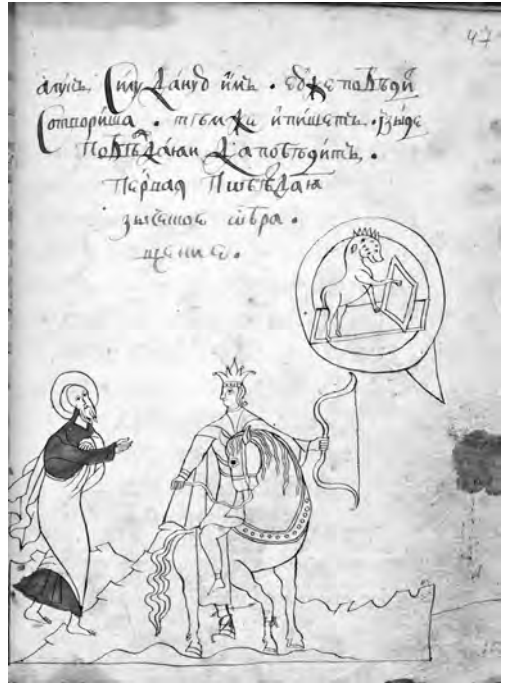 47
алукъ, силу даную имъ . еюже побѣды
сотвориша . тѣмже ипишетъ . изыде
побѣждаяи да побѣдитъ .
первая побѣда я
зыческое ѡбра .
щение .